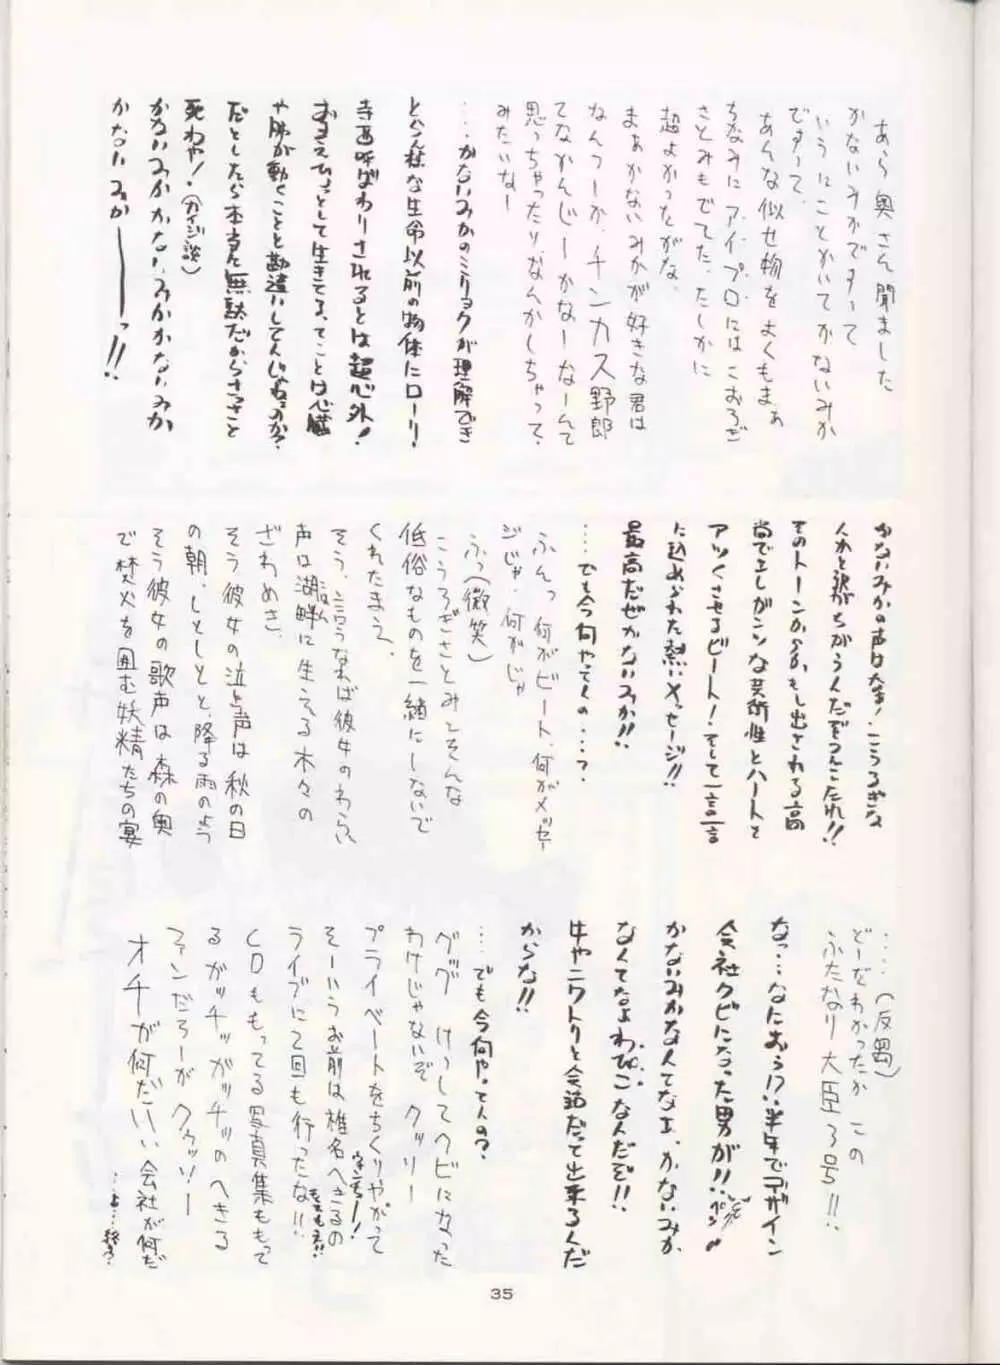 あら奥さん聞きました
かないみかですって
いうにことかいてかないみか
ですって、
あんな似せ物をよくもまぁ
ちなみにアイプロにはこおろぎ
さとみもでてた、たしかに
超よかったがな、
まぁかないみかが好きな君は
なんつーか、チンカス野郎
てなかんじーかなーなーんて
思っちゃったりなんかしちゃって、
みたいなー
・・・・かないみかのミリョクが理解でき
とらん様な生命以前の物体にローリ!
呼ばわりされるとは超心外!
おまえひょっとして生きてる、てことは心臓
や肺が動くことと勘違いしてんじゃねえのか?
だとしたら本当に無駄だからさっさと
死ねや!(カイジ談)
かないみかかないみかかないみか
かないみかーーーっ!!
かないみかの声は大生!こうろぎな
人かと訳がちがうんだぞうんこたれ!!
そのトーンからかもし出される高
尚でエレガンツな芸術性とハートを
アツくさせるビート!そして一言一言
に込められた熱いメッセージ!!
最高だぜかないみか!!
・・・・でも今何やってんの・・・・?
ふんっ何がビート、何がメッセー
ジじゃ、何がじゃ
ふっ(微笑)
こうろぎさとみをそんな
低俗なものを一緒にしないで
くれたまえ、
そう、言うなれば彼女のわらい
声は湖畔に生える木々の
ざわめき、
そう彼女の泣き声は秋の日
の朝、しとしとと、降る雨のよう
そう彼女の歌声は森の奥
で焚火を囲む妖精たちの宴
・・・・(反芻)
どーだわかったかこの
ふたなり大臣3号!!
なっ・・・なにおぅ!?半年でデザイン
会社クビになった男が!!
かないみかなくてなに、かないみか
なくてなよわぴこなんだぞ!!
牛やニワトリと会話だって出来るんだ
からな!!
・・・でも今何やってんの?
グッグ けっしてクビになった
わけじゃないぞ クッソー
プライベートをちくりやがって
ウキンチョー!
そーいうお前は椎名へきるの
ライブに2回も行ったな!!
CDももってる写真集ももって
るガッチッガッチッのへきる
ファンだろーがクゥッソー
オチが何だいい会社が何だ
・・・よ・・・終わろ?
35